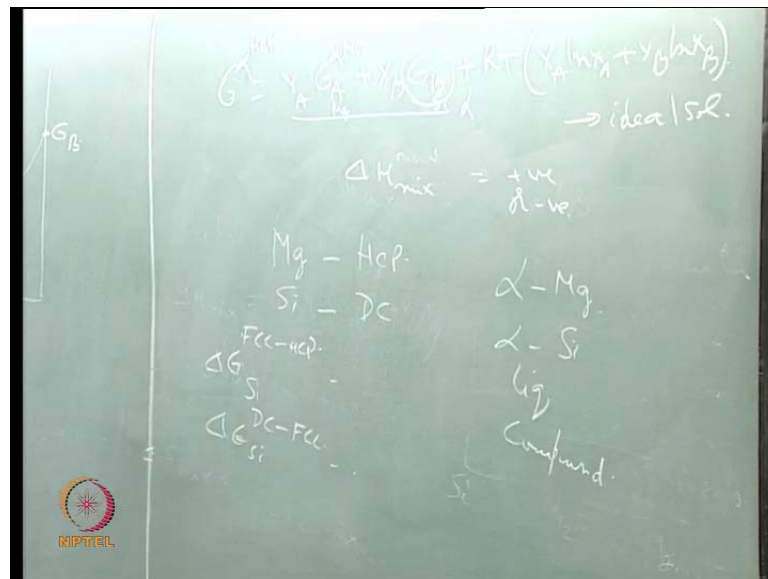 G = X_A G_A + X_B G_B + RT (X_A ln X_A + X_B ln X_B)
→ ideal sol.
G_B
ΔH_mix = +ve
or -ve.
Mg - HCP.
Si - DC
ΔG_Si^FCC-HCP.
ΔG_Si^DC-FCC.
α - Mg
α - Si
Liq
Compound.
Si
NPTEL